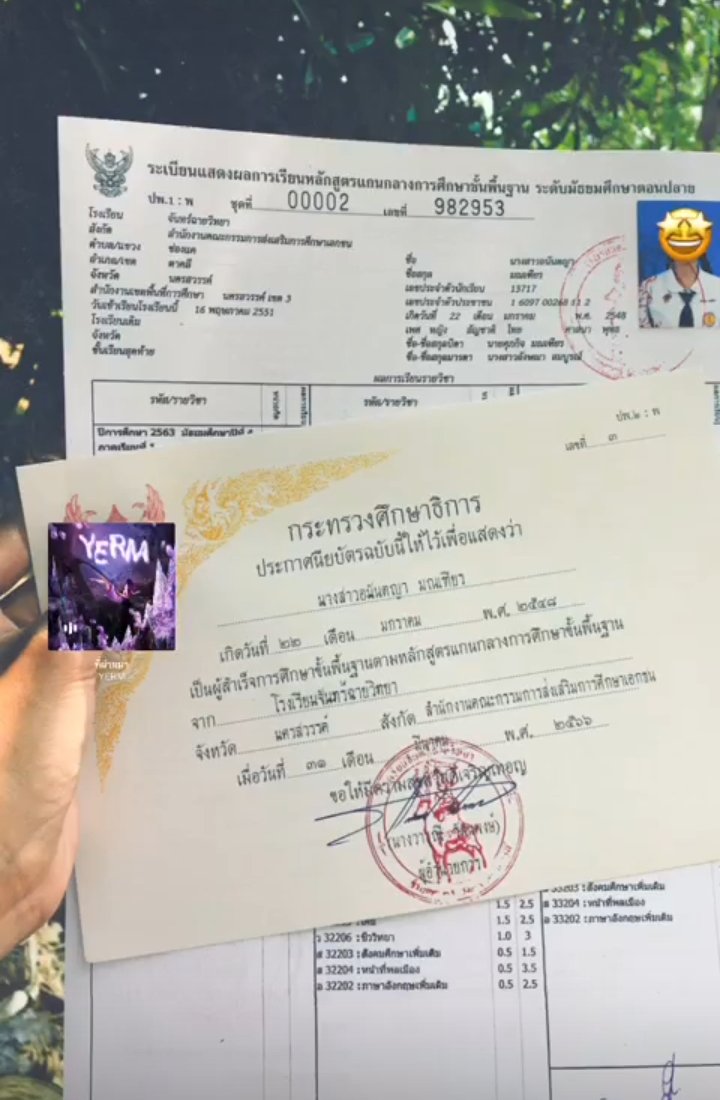 ระเบียนแสดงผลการเรียนหลักสูตรแกนกลางการศึกษาขั้นพื้นฐาน ระดับมัธยมศึกษาตอนปลาย
ปพ.1 : พ ชุดที่ 00002 เลขที่ 982953
โรงเรียน จันทร์ฉายวิทยา
สังกัด สำนักงานคณะกรรมการส่งเสริมการศึกษาเอกชน
ตำบล/แขวง ช่องแค
อำเภอ/เขต ตาคลี
จังหวัด นครสวรรค์
สำนักงานเขตพื้นที่การศึกษา นครสวรรค์ เขต 3
วันเข้าเรียนโรงเรียนนี้ 16 พฤษภาคม 2551
โรงเรียนเดิม
จังหวัด
ชั้นเรียนสุดท้าย
ชื่อ นางสาวอนันตญา
ชื่อสกุล มณเฑียร
เลขประจำตัวนักเรียน 13717
เลขประจำตัวประชาชน 1 6097 00268 11 2
เกิดวันที่ 22 เดือน มกราคม พ.ศ. 2548
เพศ หญิง สัญชาติ ไทย ศาสนา พุทธ
ชื่อ-ชื่อสกุลบิดา นายศุภกิจ มณเฑียร
ชื่อ-ชื่อสกุลมารดา นางสาวอังคณา สมบูรณ์
ผลการเรียนรายวิชา
รหัส/รายวิชา
รหัส/รายวิชา
ปีการศึกษา 2563 มัธยมศึกษาปีที่ 4
ภาคเรียนที่ 1
ปพ.๒ : พ
เลขที่ ๓
กระทรวงศึกษาธิการ
ประกาศนียบัตรฉบับนี้ให้ไว้เพื่อแสดงว่า
นางสาวอนันตญา มณเฑียร
เกิดวันที่ ๒๒ เดือน มกราคม พ.ศ. ๒๕๔๘
เป็นผู้สำเร็จการศึกษาขั้นพื้นฐานตามหลักสูตรแกนกลางการศึกษาขั้นพื้นฐาน
จาก โรงเรียนจันทร์ฉายวิทยา
จังหวัด นครสวรรค์ สังกัด สำนักงานคณะกรรมการส่งเสริมการศึกษาเอกชน
เมื่อวันที่ ๓๑ เดือน มีนาคม พ.ศ. ๒๕๖๖
ขอให้มีความสุขสวัสดิ์เจริญเทอญ
YERM
ที่ผ่านมา
YERM
1.5 2.5
1.5 2.5
ว 32206 : ชีววิทยา 1.0 3
ส 32203 : สังคมศึกษาเพิ่มเติม 0.5 1.5
ส 32204 : หน้าที่พลเมือง 0.5 3.5
อ 32202 : ภาษาอังกฤษเพิ่มเติม 0.5 2.5
ส 33203 : สังคมศึกษาเพิ่มเติม
ส 33204 : หน้าที่พลเมือง
อ 33202 : ภาษาอังกฤษเพิ่มเติม